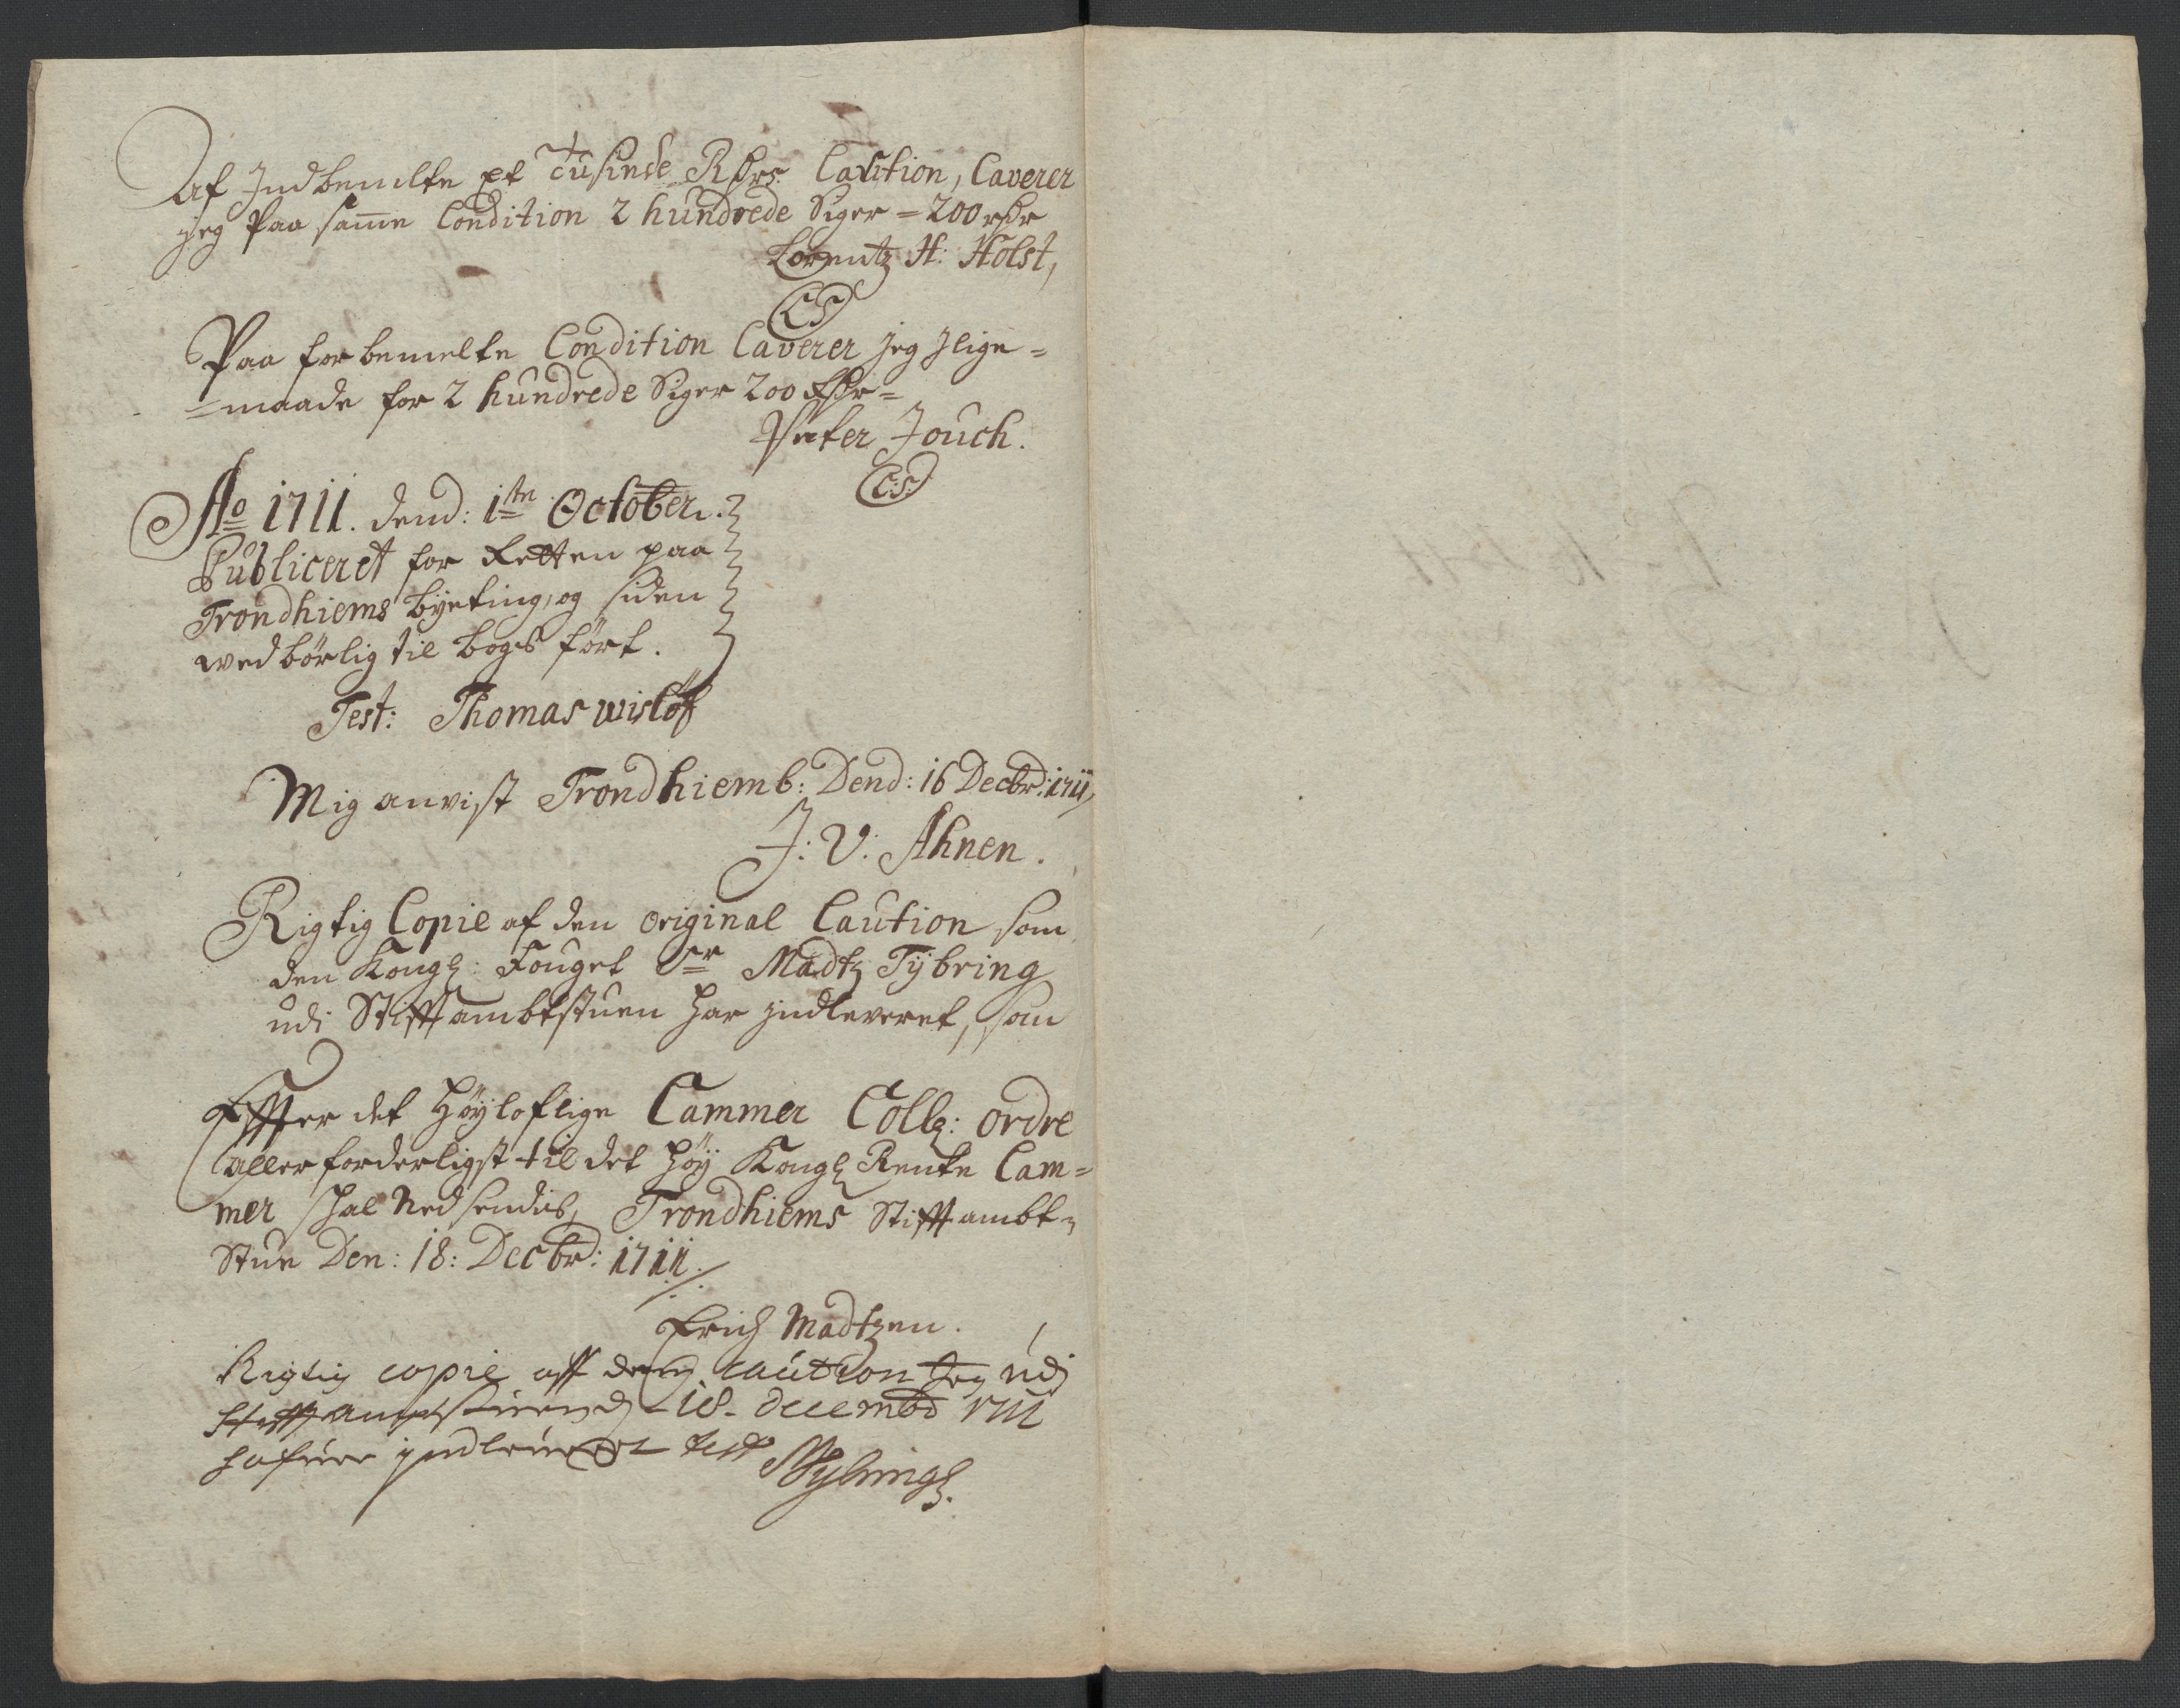 Af Indbemelte et Tusinde Rdrs Caution, Caverer
jeg Paa samme Condition 2 hundrede Siger = 200 rdr
Lorentz H: Holst,
LS
Paa forbemelte Condition Caverer jeg jlige =
= maade for 2 hundrede Siger 200 Rdr =
Peter Jouch.
L:S:
Ao 1711. dend: 1te October.
Publiceret for Retten paa
Trondhiems byeting, og siden
wedbörlig til bogs fört.
Test: Thomas wislöff
Mig anvist Trondhiemb: Dend: 16 Decbr: 1711,
J: V: Ahnen.
Rigtig Copie af den original Caution som
den Kongl: Fouget Sr Madtz Tÿbring
udi Stifftambtstuen har indleveret, som
Effter det Höÿloflige Cammer Coll: ordre
allerforderligst til det höÿ Kongl Rente Cam=
mer skal Nedsendis, Trondhiems Stifftambt=
Stue Den: 18: Decbr: 1711.
Erich Madtzen.
Rigtig copie aff den caution Jeg udj
Stifftamptstuen d 18 decembr 1711
hafuer jndleueret test
MTybringh.